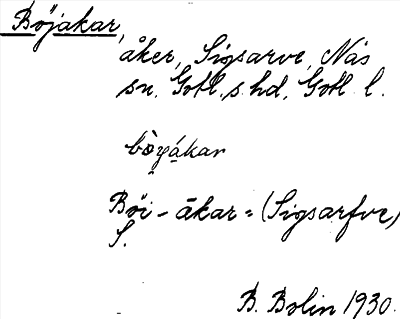 Böjakar,
åker, Sigsarve, Näs
sn. Gotl. s. hd, Gotl. l.
bòyákar
Böi-åkar = (Sigsarfve)
S.
B. Bolin 1930.